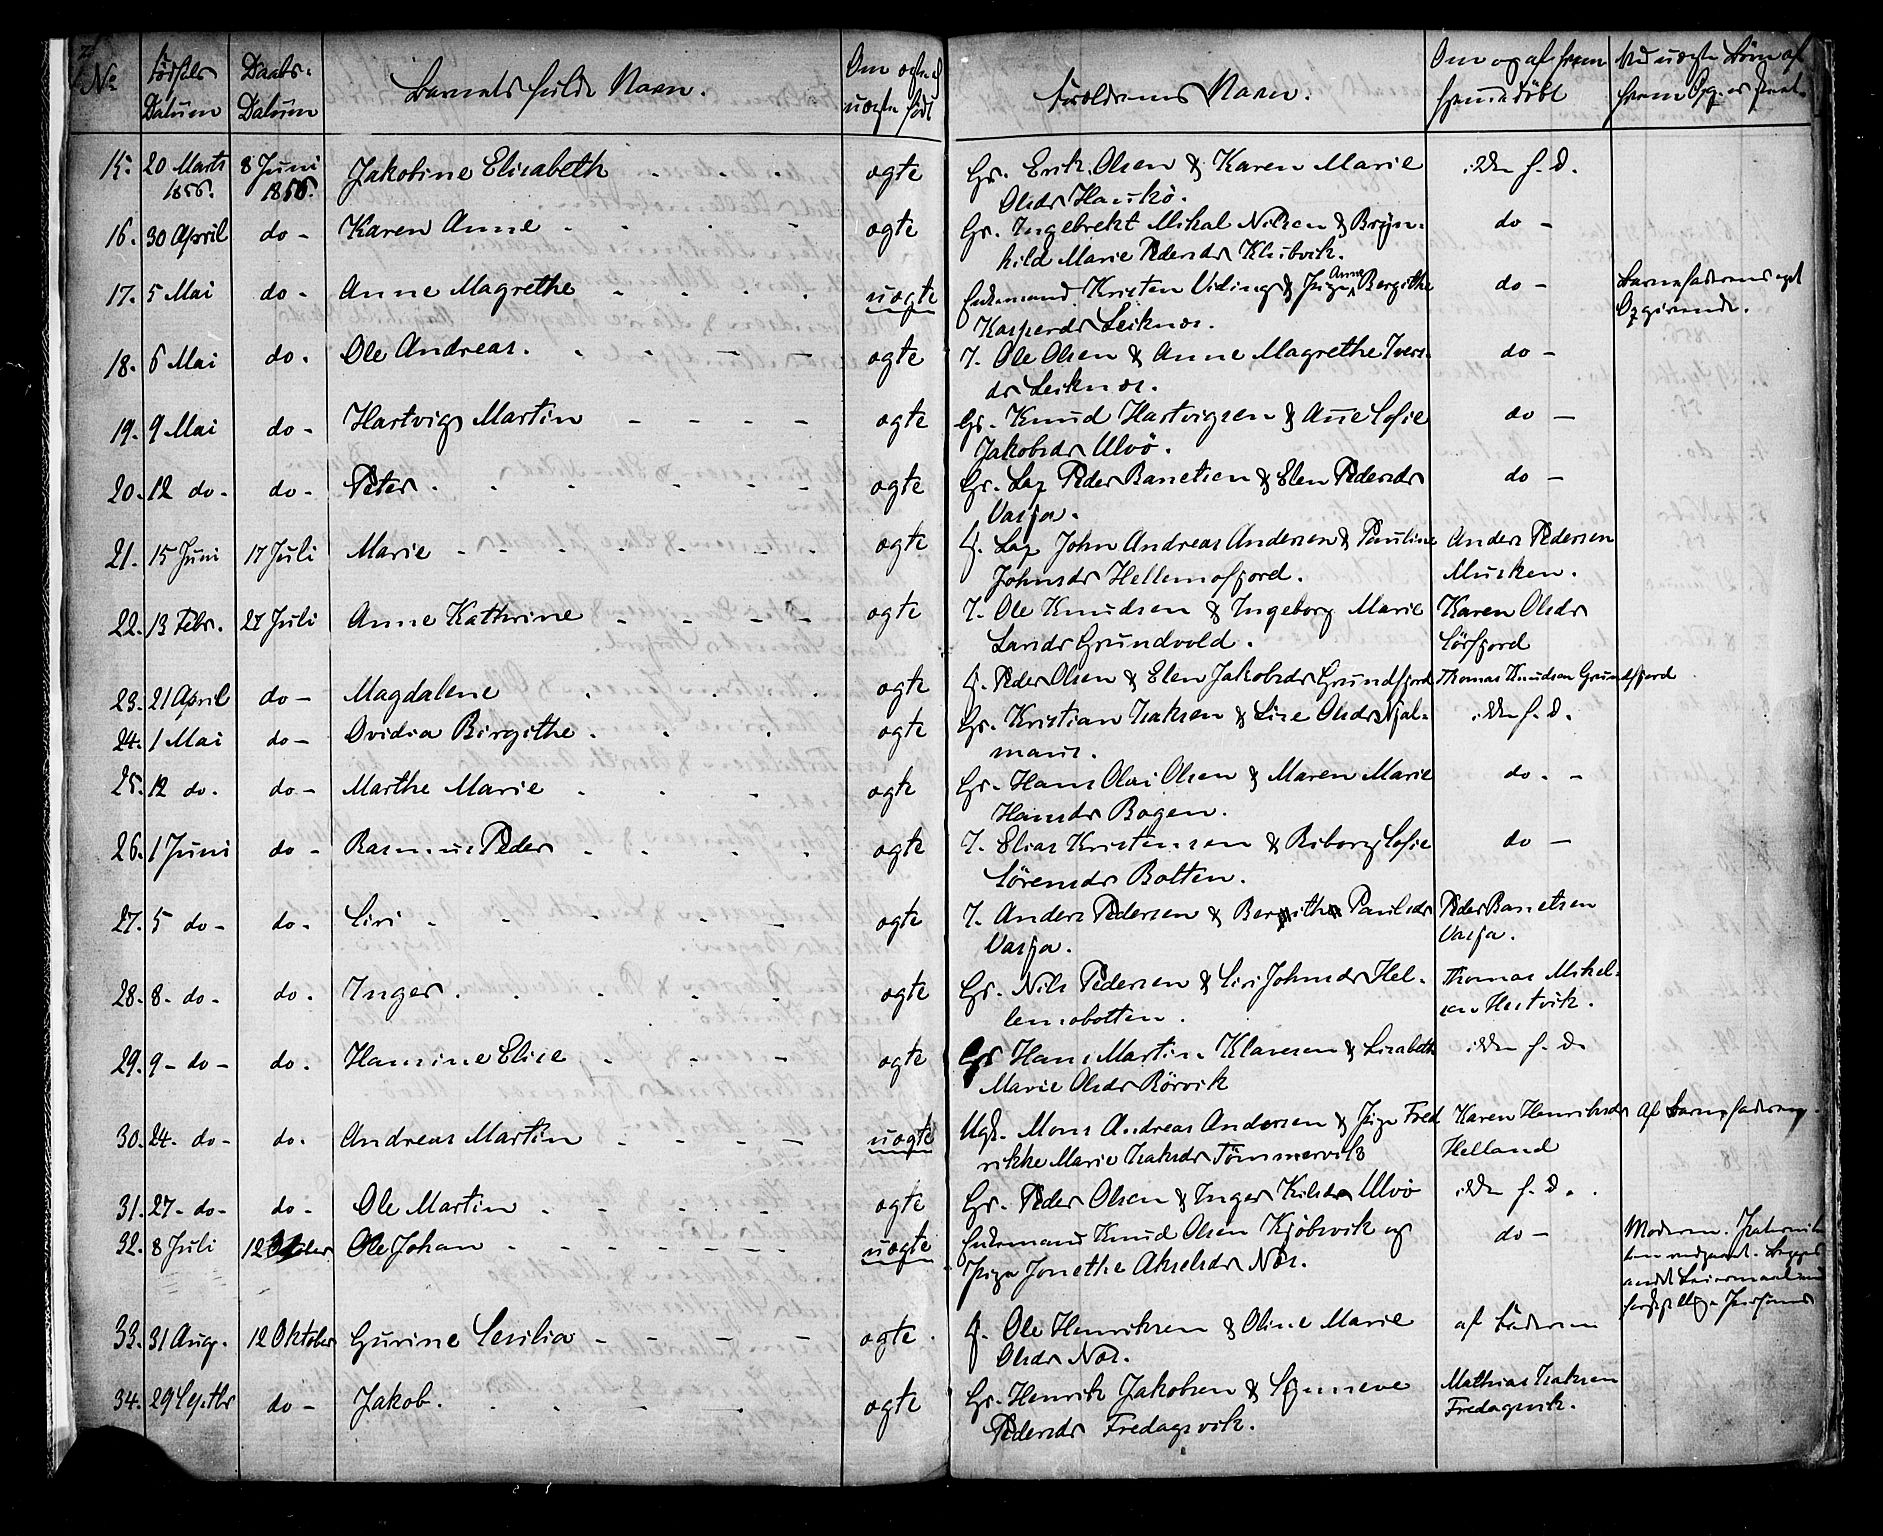 No Fødsels Datum Daabs- Datum Barnets fulde Navn. Om ægte el uægte født Forældrenes Navn. Om og af hvem hjemmedøbt Ved uægte Børn af hvem Opg. er skeet.
15. 20 Marts 1856. 8 Juni 1856. Jakobine Elisabeth ægte Gr. Erik Olsen & Karen Marie ikke h. d.
Olsdr
16. 30 April do - Karen Anne ægte Gr. Ingebrekt Mikal Nilsen & Bryn- do -
hild Marie Pedersdr Klubvik.
17. 5 Mai do - Anne Magrethe uægte Enkemand Kristen & Pige Anne Bergithe do - Barnefaderens eget
Kaspersdr Leiknes. Opgivende.
18. 6 Mai do. Ole Andreas. ægte I. Ole Olsen & Anne Magrethe Ivers- do -
dr Leiknes.
19. 9 Mai do - Hartvig Martin ægte Gr. Knud Hartvigsen & Ane Sofie do -
Jakobsdr Ulvö.
20. 12 do - do - Peter. ægte Gr. Lap Peder Banetsen & Elen Pedersdr do -
Vasja.
21. 15 Juni 17 Juli Marie ægte Lap John Andreas Andersen & Pauline Anders Pedersen
Johnsdr Hellemofjord. Musken.
22. 13 Febr. 27 Juli Anne Kathrine ægte I. Ole Knudsen & Ingeborg Marie Karen Olsdr
Larsdr Grundvold. Sörfjord
23. 21 April do - Magdalene ægte Peder Olsen & Elen Jakobsdr Grundfjord Thomas Knudsen Grundfjord
24. 1 Mai do - Ovidia Birgithe. ægte Gr. Kristian Isaksen & Lise Olsdr ikke h. d.
25. 12 do. do - Marthe Marie ægte Gr. Hans Olai Olsen & Maren Marie do. -
Hansdr Bogen.
26. 1 Juni do - Rasmus Peder ægte I. Elias Kristensen & Riborg Sofie do -
Sörensdr Botten.
27. 5 do - do. Siri ægte I. Anders Pedersen & Paulsdr Peder Banetsen
Vasja. Vasja.
28. 8- do- do. Inger. ægte Gr. Nils Pedersen & Siri Johnsdr Hel- Thomas Mikel-
lemobotten. sen Hestvik.
29. 9 - do - do. Hansine Elise ægte Gr Hans Martin Klausen & Lisabeth ikke h. d.
Marie Olsdr Rörvik
30. 24- do- do. Andreas Martin uægte Ugk. Mons Andreas Andersen & Pige Fred Karen Henriksdr Af Barnefaderen.
rikke Marie Isaksdr Tömmervik Helland
31. 27- do- do- Ole Martin ægte Gr. Peder Olsen & Inger Ulvö ikke h. d.
32. 8 Juli 12 Ole Johan uægte Enkemand Knud Olsen Kjöbsvik og do - Moderen.
Pige Jonethe Akselsdr Nes.
33. 31 Aug. 12 Oktober Gurine Sesilia ægte. Ole Henriksen & Oline Marie af Faderen
Olsdr Nes.
34. 29 Septbr do - Jakob. ægte Gr. Henrik Jakobsen & Synneve Mathias Isaksen
Pedersdr Fredagsvik. Fredagsvik.